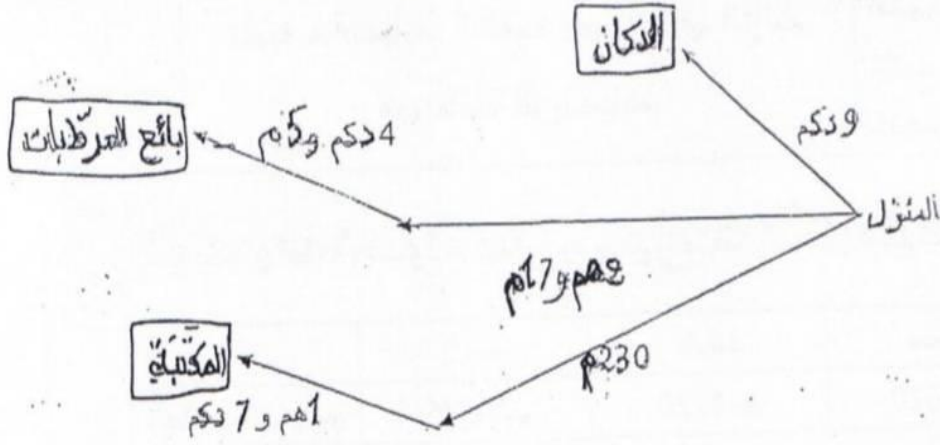 الدكان
9 دكم
بائع المرطبات
4 دكم و 5م
المنزل
2هم و 17م
المكتبة
230م
1هم و 7 دكم